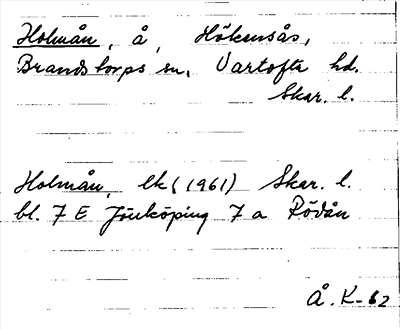 Holmån, å, Hökensås,
Brandstorps sn, Vartofta hd.
Skar. l.
Holmån, Ek (1961) Skar. l.
bl. 7 E Jönköping 7 a Rödån
Å. K-62